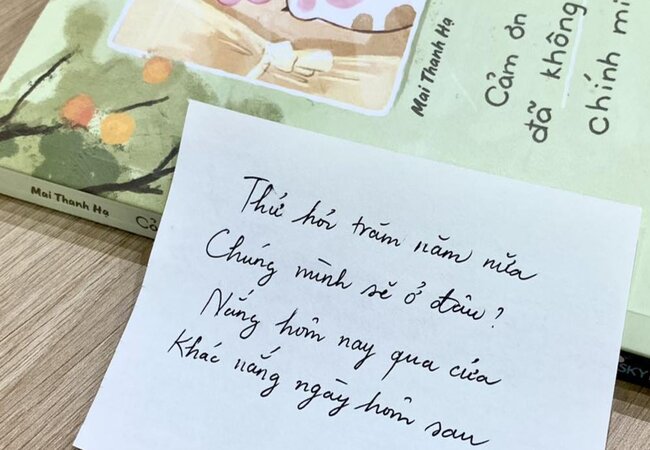 Mai Thanh Hạ
Cảm ơn
đã không
chính mì
Mai Thanh Hạ
Cả
Thử hỏi trăm năm nữa
Chúng mình sẽ ở đâu?
Nắng hôm nay qua cửa
Khác nắng ngày hôm sau
SKY